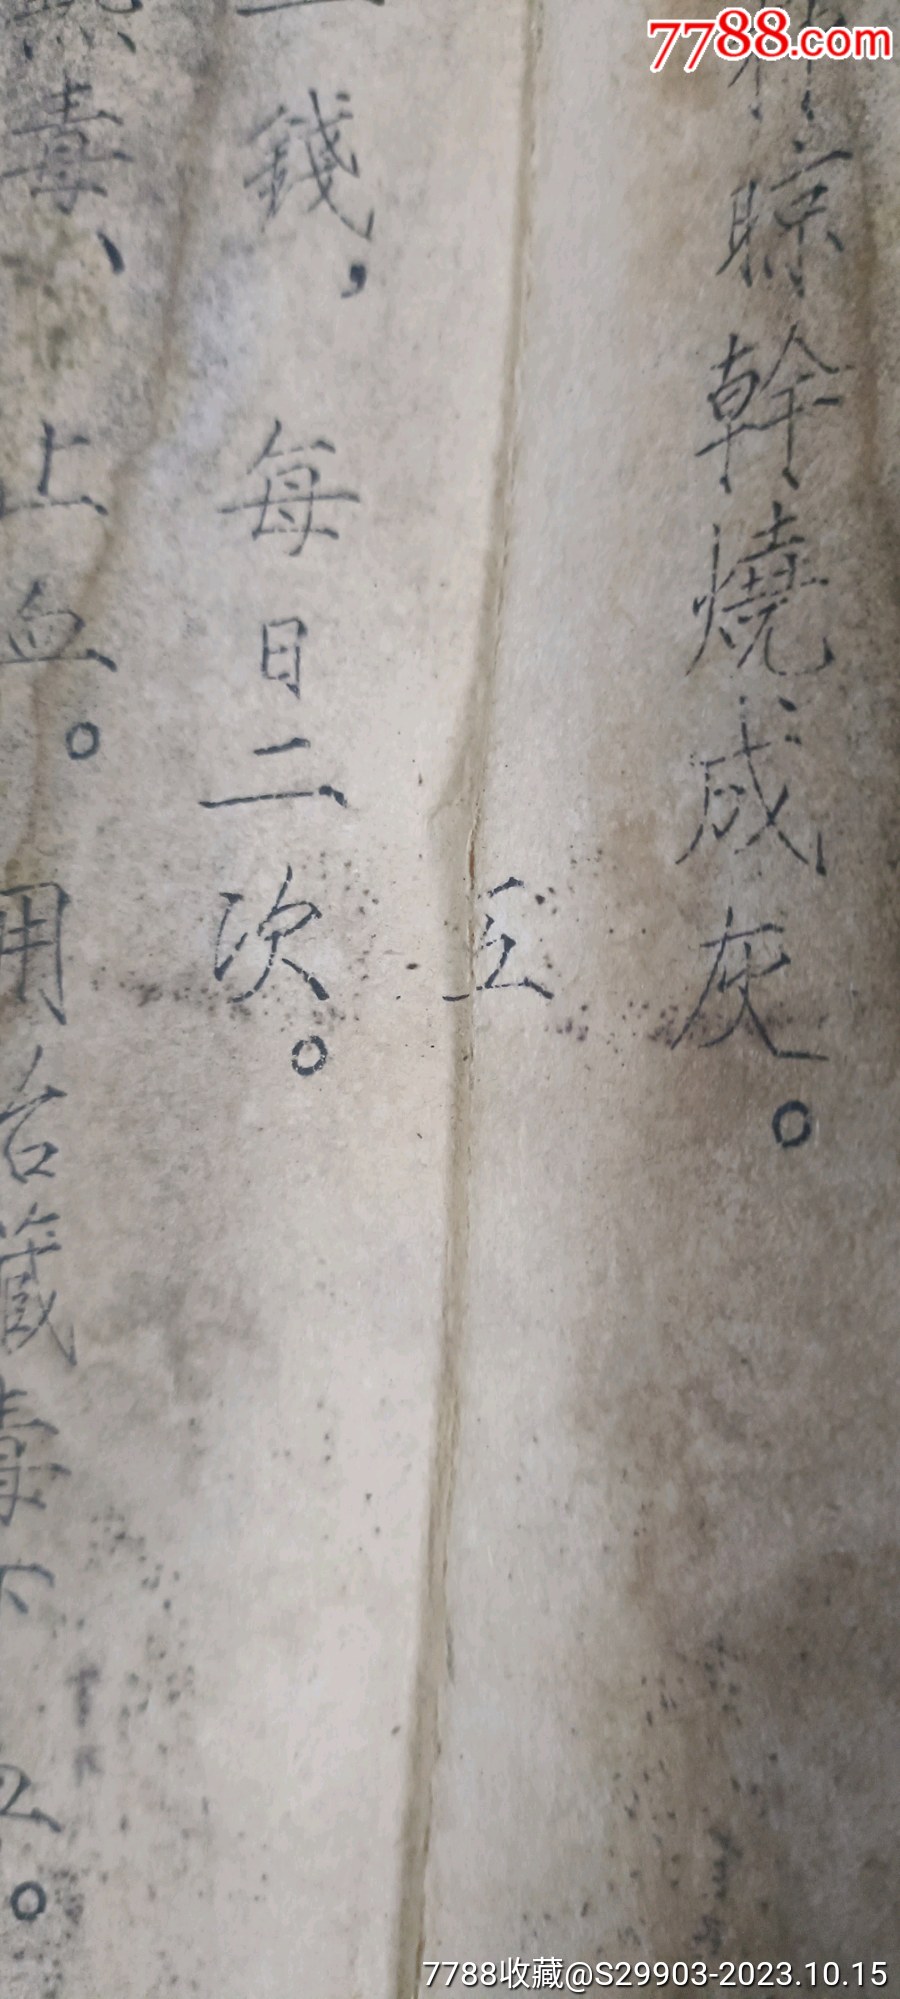 7788.com
晾幹燒成灰。
五
錢，每日二次。
毒、止血。用治藏毒下血。
7788收藏@S29903-2023.10.15